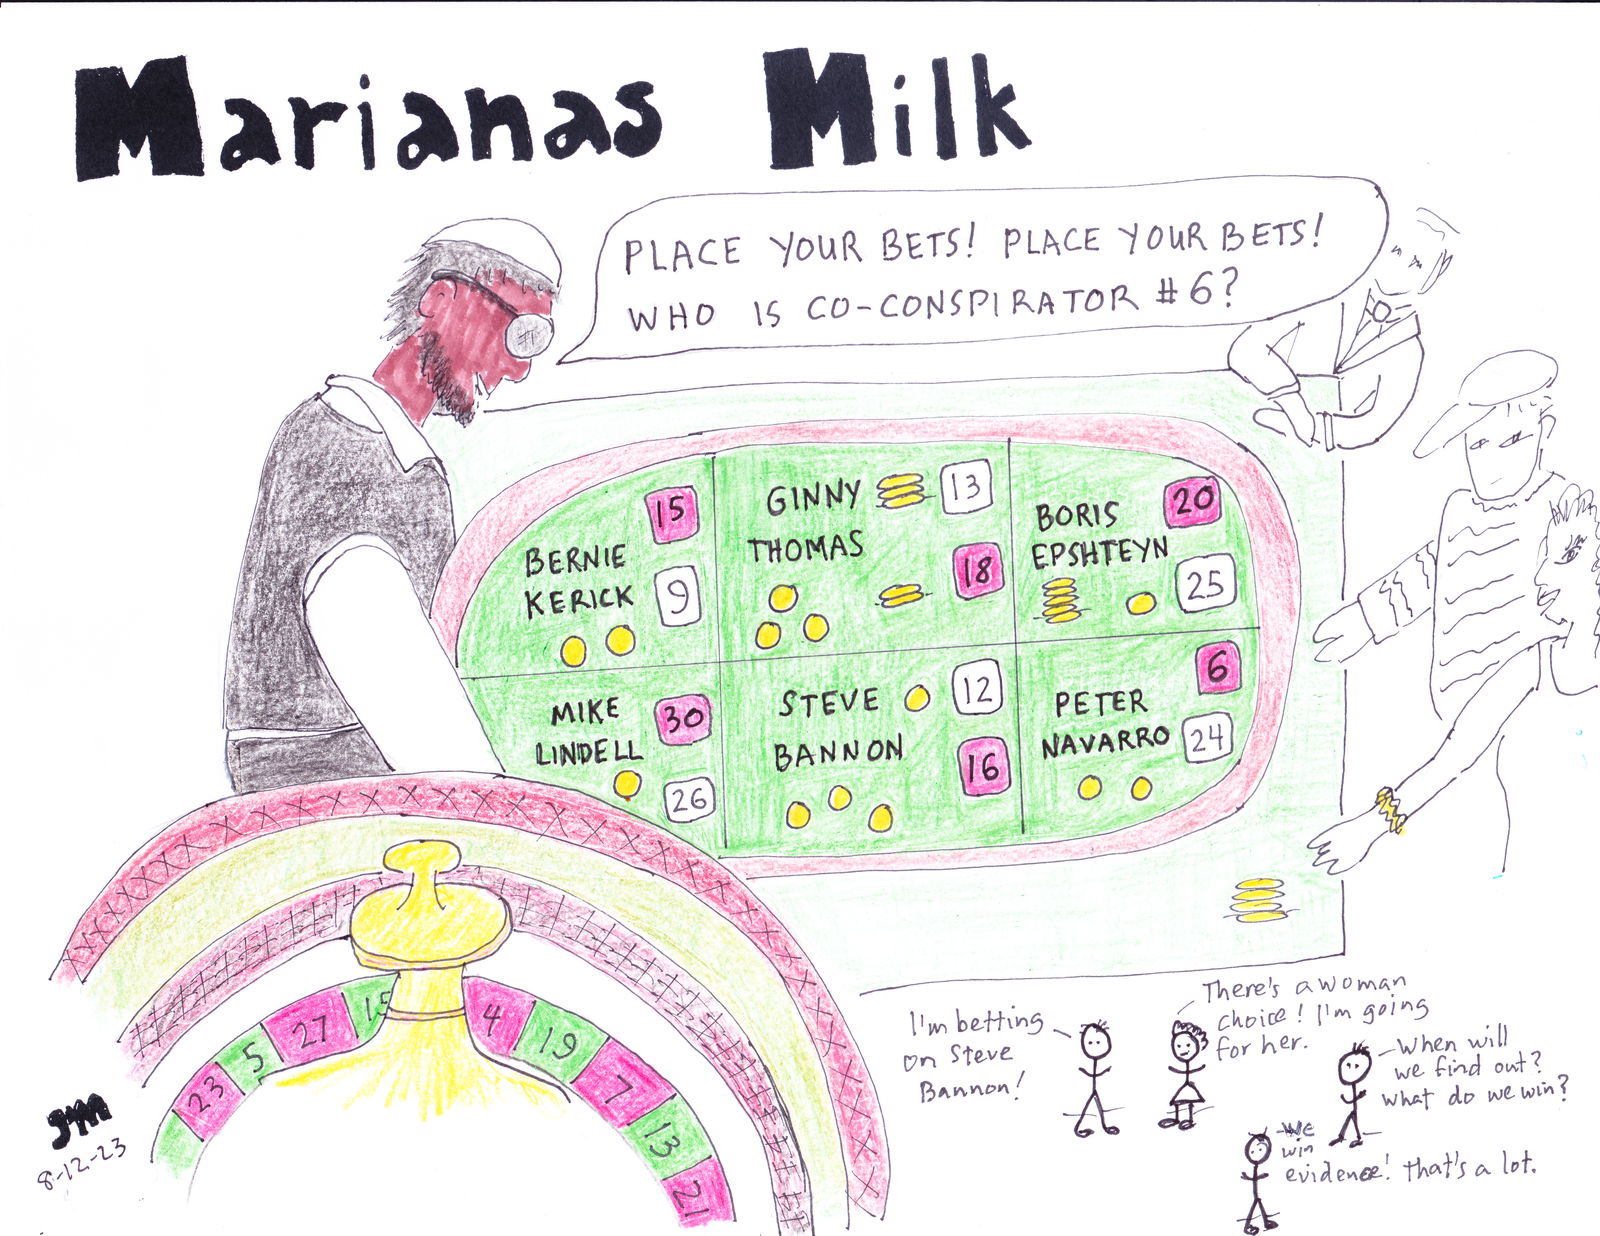 Marianas Milk
PLACE YOUR BETS! PLACE YOUR BETS!
WHO IS CO-CONSPIRATOR #6?
BERNIE
KERICK
15
9
GINNY
THOMAS
13
18
BORIS
EPSHTEYN
20
25
MIKE
LINDELL
30
26
STEVE
BANNON
12
16
PETER
NAVARRO
6
24
23
5
27
15
4
19
7
13
21
I'm betting
on Steve
Bannon!
There's a woman
choice! I'm going
for her.
When will
we find out?
what do we win?
We
win
evidence! That's a lot.
8-12-23